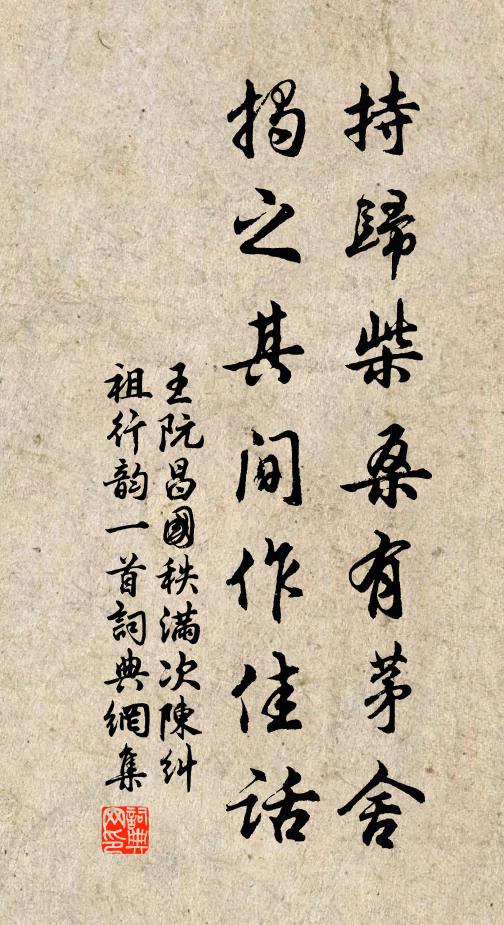 持歸柴桑有茅舍
揭之其間作佳話
王阮昌國秩滿次陳糾
祖行韵一首詞典網集
詞典
网印